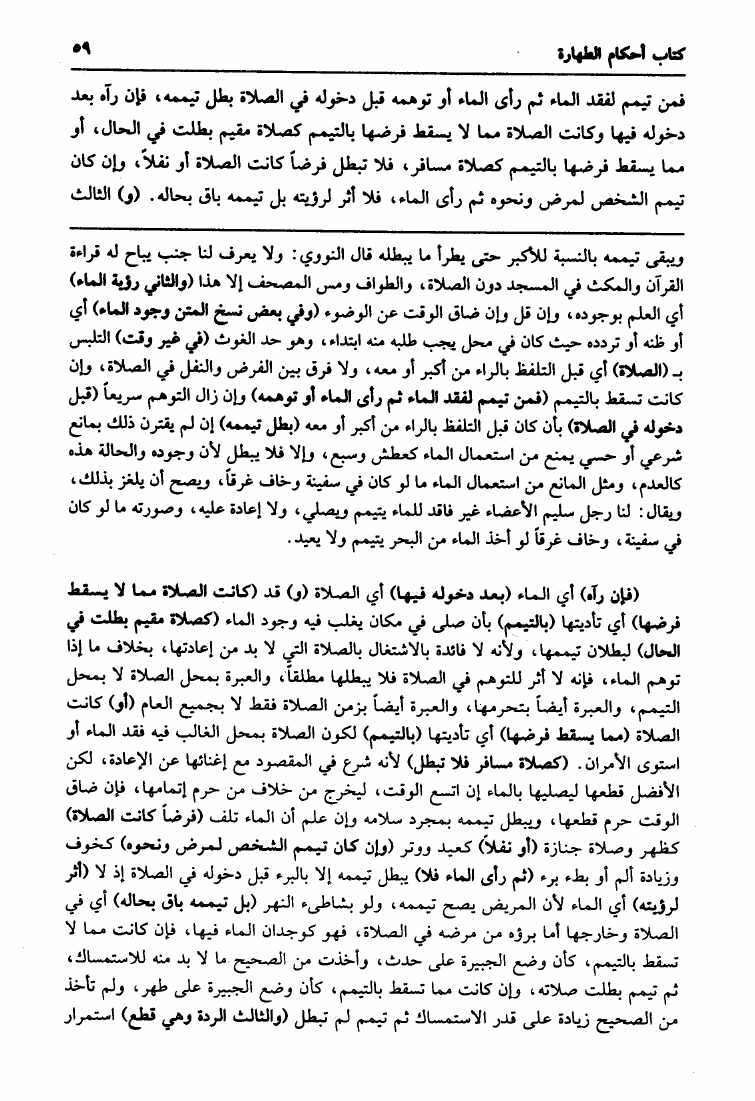 كتاب أحكام الطهارة ٥٩
فمن تيمم لفقد الماء ثم رأى الماء أو توهمه قبل دخوله في الصلاة بطل تيممه، فإن رآه بعد
دخوله فيها وكانت الصلاة مما لا يسقط فرضها بالتيمم كصلاة مقيم بطلت في الحال، أو
مما يسقط فرضها بالتيمم كصلاة مسافر، فلا تبطل فرضاً كانت الصلاة أو نفلاً، وإن كان
تيمم الشخص لمرض ونحوه ثم رأى الماء، فلا أثر لرؤيته بل تيممه باق بحاله. (و) الثالث
ويبقى تيممه بالنسبة للأكبر حتى يطرأ ما يبطله قال النووي: ولا يعرف لنا جنب يباح له قراءة
القرآن والمكث في المسجد دون الصلاة، والطواف ومس المصحف إلا هذا (والثاني رؤية الماء)
أي العلم بوجوده، وإن قل وإن ضاق الوقت عن الوضوء (وفي بعض نسخ المتن وجود الماء) أي
أو ظنه أو تردده حيث كان في محل يجب طلبه منه ابتداء، وهو حد الغوث (في غير وقت) التلبس
بـ (الصلاة) أي قبل التلفظ بالراء من أكبر أو معه، ولا فرق بين الفرض والنفل في الصلاة، وإن
كانت تسقط بالتيمم (فمن تيمم لفقد الماء ثم رأى الماء أو توهمه) وإن زال التوهم سريعاً (قبل
دخوله في الصلاة) بأن كان قبل التلفظ بالراء من أكبر أو معه (بطل تيممه) إن لم يقترن ذلك بمانع
شرعي أو حسي يمنع من استعمال الماء كعطش وسبع، وإلا فلا يبطل لأن وجوده والحالة هذه
كالعدم، ومثل المانع من استعمال الماء ما لو كان في سفينة وخاف غرقاً، ويصح أن يلغز بذلك،
ويقال: لنا رجل سليم الأعضاء غير فاقد للماء يتيمم ويصلي، ولا إعادة عليه، وصورته ما لو كان
في سفينة، وخاف غرقاً لو أخذ الماء من البحر يتيمم ولا يعيد.
(فإن رآه) أي الماء (بعد دخوله فيها) أي الصلاة (و) قد (كانت الصلاة مما لا يسقط
فرضها) أي تأديتها (بالتيمم) بأن صلى في مكان يغلب فيه وجود الماء (كصلاة مقيم بطلت في
الحال) لبطلان تيممها، ولأنه لا فائدة بالاشتغال بالصلاة التي لا بد من إعادتها، بخلاف ما إذا
توهم الماء، فإنه لا أثر للتوهم في الصلاة فلا يبطلها مطلقاً، والعبرة بمحل الصلاة لا بمحل
التيمم، والعبرة أيضاً بتحرمها، والعبرة أيضاً بزمن الصلاة فقط لا بجميع العام (أو) كانت
الصلاة (مما يسقط فرضها) أي تأديتها (بالتيمم) لكون الصلاة بمحل الغالب فيه فقد الماء أو
استوى الأمران. (كصلاة مسافر فلا تبطل) لأنه شرع في المقصود مع إغنائها عن الإعادة، لكن
الأفضل قطعها ليصليها بالماء إن اتسع الوقت، ليخرج من خلاف من حرم إتمامها، فإن ضاق
الوقت حرم قطعها، ويبطل تيممه بمجرد سلامه وإن علم أن الماء تلف (فرضاً كانت الصلاة)
كظهر وصلاة جنازة (أو نفلاً) كعيد ووتر (وإن كان تيمم الشخص لمرض ونحوه) كخوف
وزيادة ألم أو بطء برء (ثم رأى الماء فلا) يبطل تيممه إلا بالبرء قبل دخوله في الصلاة إذ لا (أثر
لرؤيته) أي الماء لأن المريض يصح تيممه، ولو بشاطىء النهر (بل تيممه باق بحاله) أي في
الصلاة وخارجها أما برؤه من مرضه في الصلاة، فهو كوجدان الماء فيها، فإن كانت مما لا
تسقط بالتيمم، كأن وضع الجبيرة على حدث، وأخذت من الصحيح ما لا بد منه للاستمساك،
ثم تيمم بطلت صلاته، وإن كانت مما تسقط بالتيمم، كأن وضع الجبيرة على طهر، ولم تأخذ
من الصحيح زيادة على قدر الاستمساك ثم تيمم لم تبطل (والثالث الردة وهي قطع) استمرار